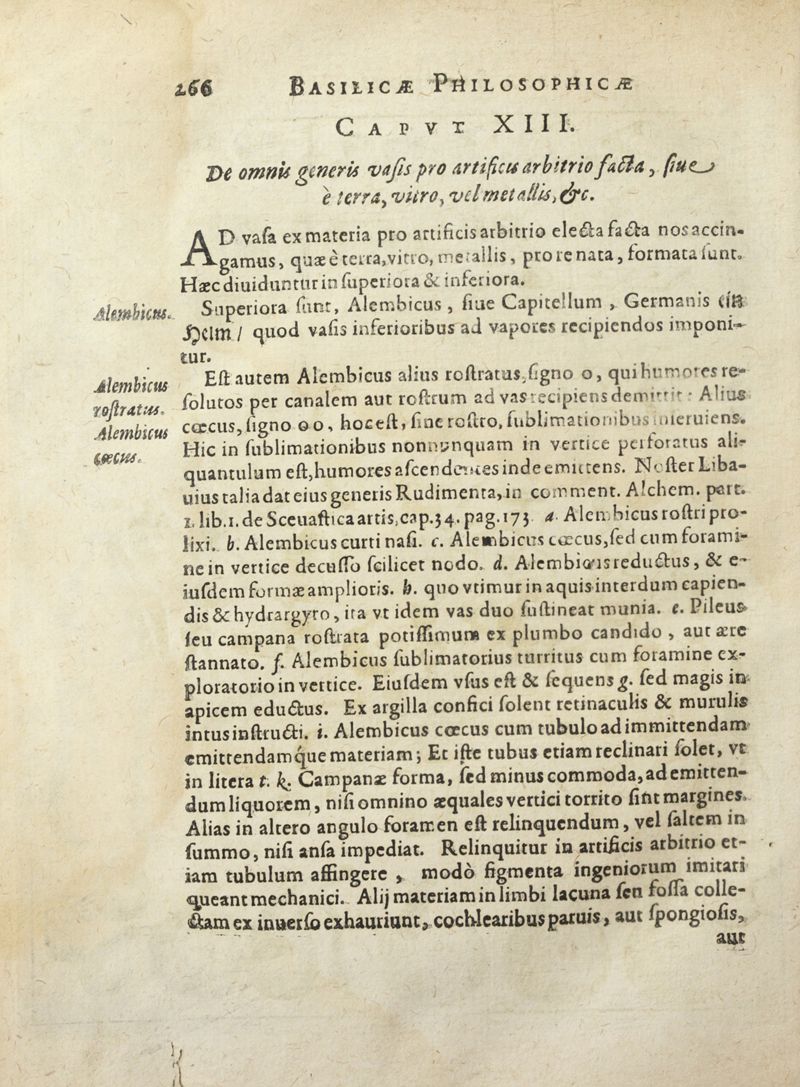 266 BASILICÆ PHILOSOPHICÆ
CAPVT XIII.
De omnis generis vasis pro artificis arbitrio facta, siue
è terra, vitro, vel metallis, &c.
AD vasa ex materia pro artificis arbitrio electa facta nos accin-
gamus, quæ è terra, vitro, metallis, pro re nata, formata sunt.
Hæc diuiduntur in superiora & inferiora.
Alembicus.
Superiora sunt, Alembicus, siue Capitellum, Germanis ein
Helm / quod vasis inferioribus ad vapores recipiendos imponi-
tur.
Alembicus
rostratus.
Alembicus
cœcus.
Est autem Alembicus alius rostratus, signo o, qui humores re-
solutos per canalem aut rostrum ad vas recipiens demittit: Alius
cœcus, signo oo, hoc est, sine rostro, sublimationibus inseruiens.
Hic in sublimationibus nonnunquam in vertice perforatus ali-
quantulum est, humores ascendentes inde emittens. Noster Liba-
uius talia dat eius generis Rudimenta, in comment. Alchem. part.
1. lib. 1. de Sceuastica artis, cap. 34. pag. 173. a. Alembicus rostri pro-
lixi. b. Alembicus curti nasi. c. Alembicus cœcus, sed cum forami-
ne in vertice decusso scilicet nodo. d. Alembicus reductus, & e-
iusdem formæ amplioris. h. quo vtimur in aquis interdum capien-
dis & hydrargyro, ita vt idem vas duo sustineat munia. e. Pileus
seu campana rostrata potissimum ex plumbo candido, aut ære
stannato. f. Alembicus sublimatorius turritus cum foramine ex-
ploratorio in vertice. Eiusdem vsus est & sequens g. sed magis in
apicem eductus. Ex argilla confici solent retinaculis & murulis
intus instructi. i. Alembicus cœcus cum tubulo ad immittendam
emittendamque materiam; Et iste tubus etiam reclinari solet, vt
in litera t. k. Campanæ forma, sed minus commoda, ad emitten-
dum liquorem, nisi omnino æquales vertici torrito sint margines.
Alias in altero angulo foramen est relinquendum, vel saltem in
summo, nisi ansa impediat. Relinquitur in artificis arbitrio et-
iam tubulum affingere, modò figmenta ingeniorum imitari
queant mechanici. Alij materiam in limbi lacuna seu fossa colle-
ctam ex inuerso exhauriunt, cochlearibus paruis, aut spongiosis,
aut